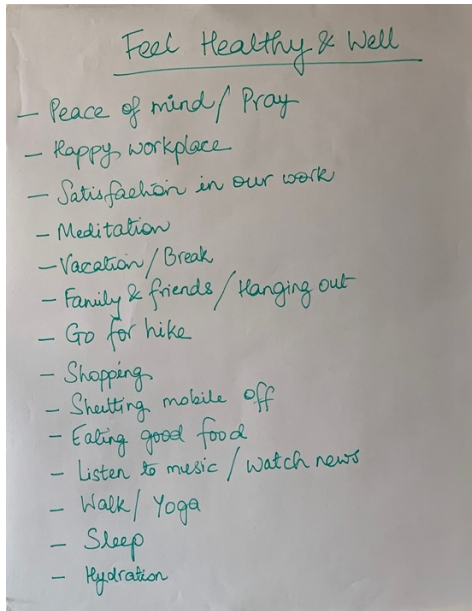 Feel Healthy & Well
- Peace of mind / Pray
- Happy workplace
- Satisfaction in our work
- Meditation
- Vacation / Break
- Family & friends / Hanging out
- Go for hike
- Shopping
- Shutting mobile off
- Eating good food
- Listen to music / Watch news
- Walk / Yoga
- Sleep
- Hydration